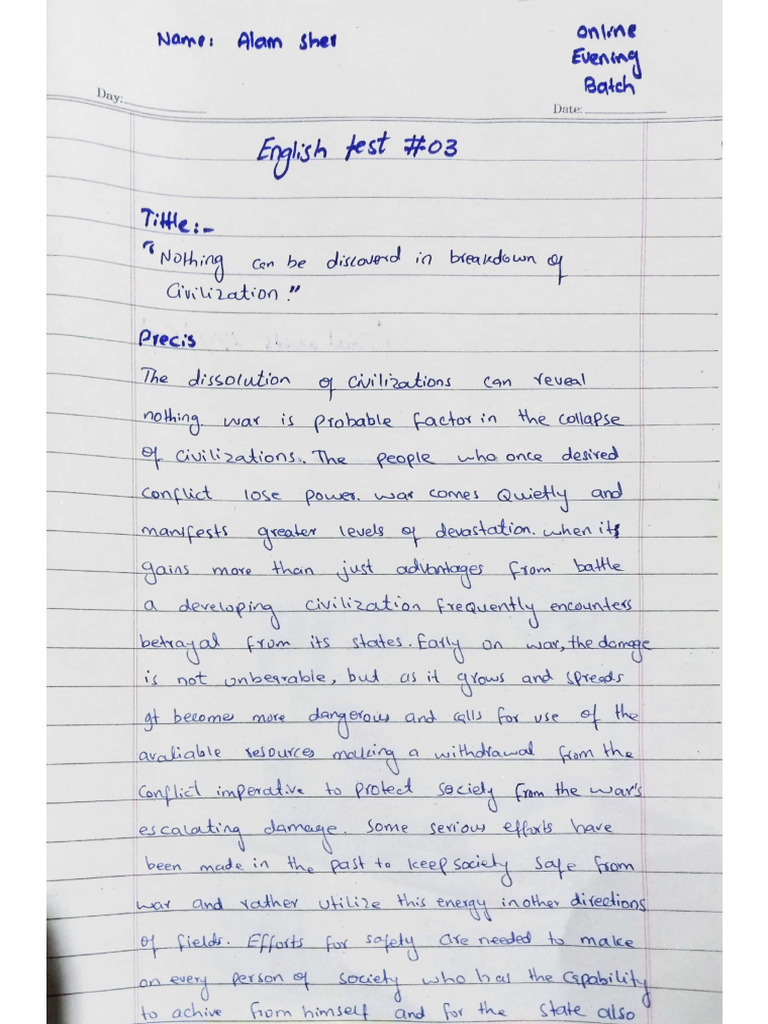 Name: Alam Sher
Online
Evening
Batch
Day:
Date:
English test #03
Tittle:-
"Nothing can be discoverd in breakdown of
Civilization."
Precis
The dissolution of civilizations can reveal
nothing. war is probable factor in the collapse
of civilizations. The people who once desired
conflict lose power. war comes Quietly and
manifests greater levels of devastation. when its
gains more than just advantages from battle
a developing civilization frequently encounters
betrayal from its states. Early on war, the damage
is not unbearable, but as it grows and spreads
gt become more dangerous and calls for use of the
avaliable resources making a withdrawal from the
conflict imperative to protect society from the war's
escalating damage. Some serious efforts have
been made in the past to keep society safe from
war and rather utilize this energy in other directions
of fields. Efforts for safety are needed to make
on every person of society who has the capability
to achive from himself and for the state also